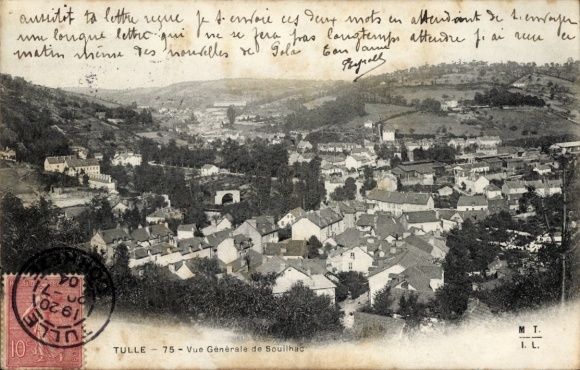 aussitôt ta lettre reçue je t'envoie ces deux mots en attendant de t'envoyer
une longue lettre, qui ne se fera pas longtemps attendre, j'ai reçu ce
matin même des nouvelles de Ton ami
TULLE - 75 - Vue Générale de Souilhac
M T.
I. L.
TULLE
10